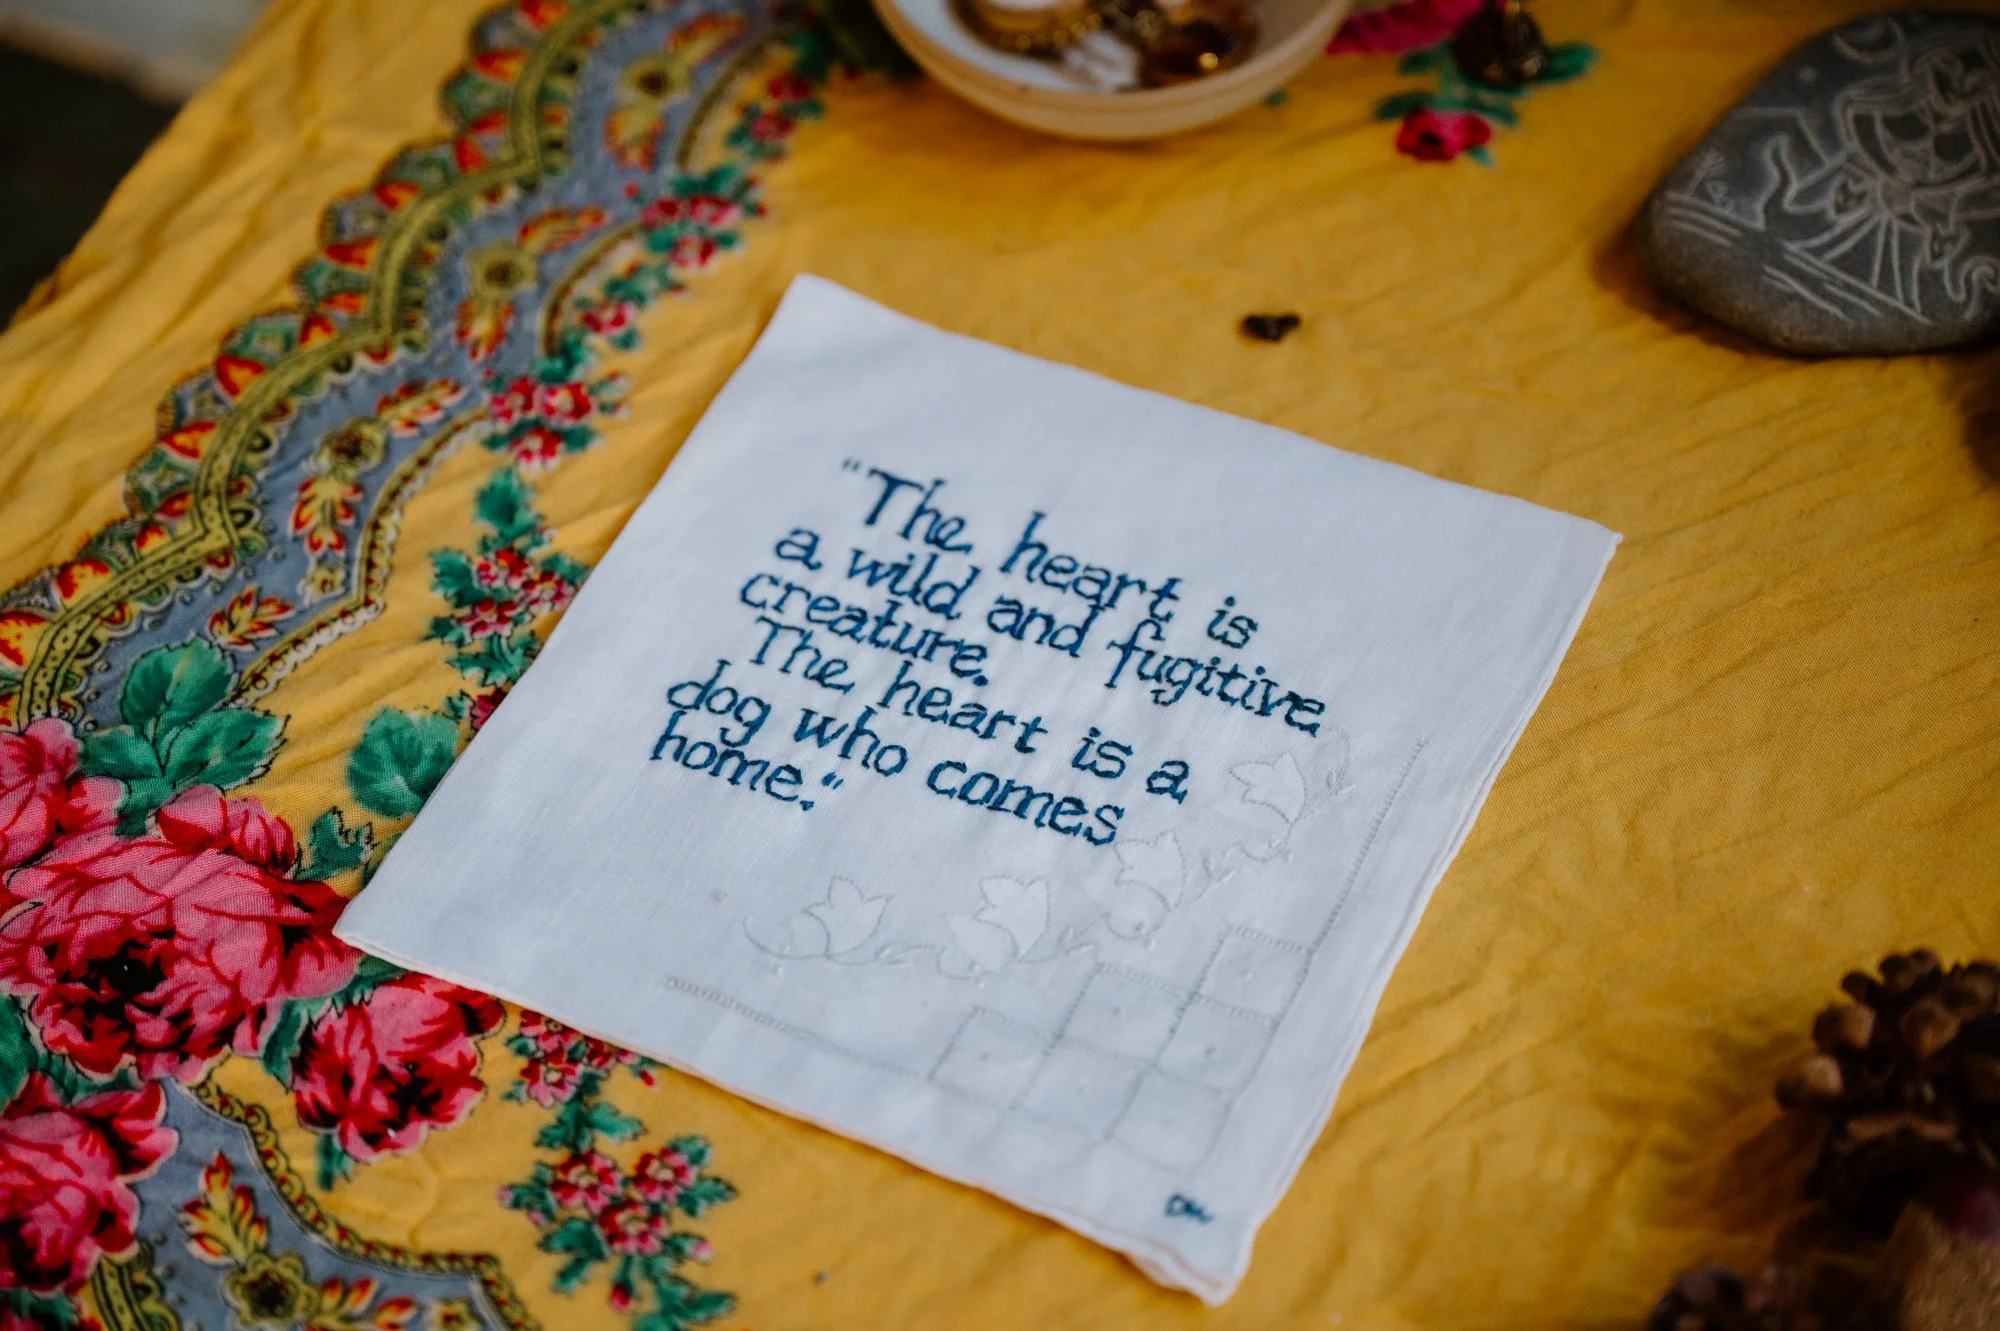 "The heart is
a wild and fugitive
creature.
The heart is a
dog who comes
home."